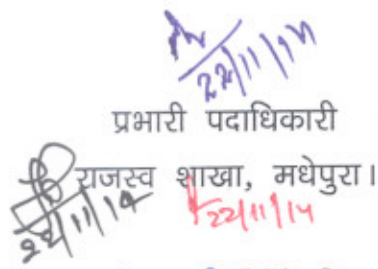 22/11/14
प्रभारी पदाधिकारी
राजस्व शाखा, मधेपुरा।
22/11/14
22/11/14